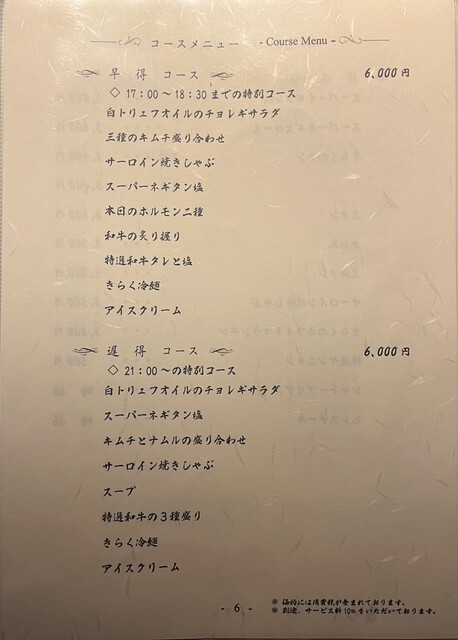 コースメニュー - Course Menu -
早得 コース 6,000円
◇ 17:00～18:30までの特別コース
白トリュフオイルのチョレギサラダ
三種のキムチ盛り合わせ
サーロイン焼きしゃぶ
スーパーネギタン塩
本日のホルモン二種
和牛の炙り握り
特選和牛タレと塩
きらく冷麺
アイスクリーム
遅得 コース 6,000円
◇ 21:00～の特別コース
白トリュフオイルのチョレギサラダ
スーパーネギタン塩
キムチとナムルの盛り合わせ
サーロイン焼きしゃぶ
スープ
特選和牛の3種盛り
きらく冷麺
アイスクリーム
※ 価格には消費税が含まれております。
※ 別途、サービス料10%をいただいております。
- 6 -